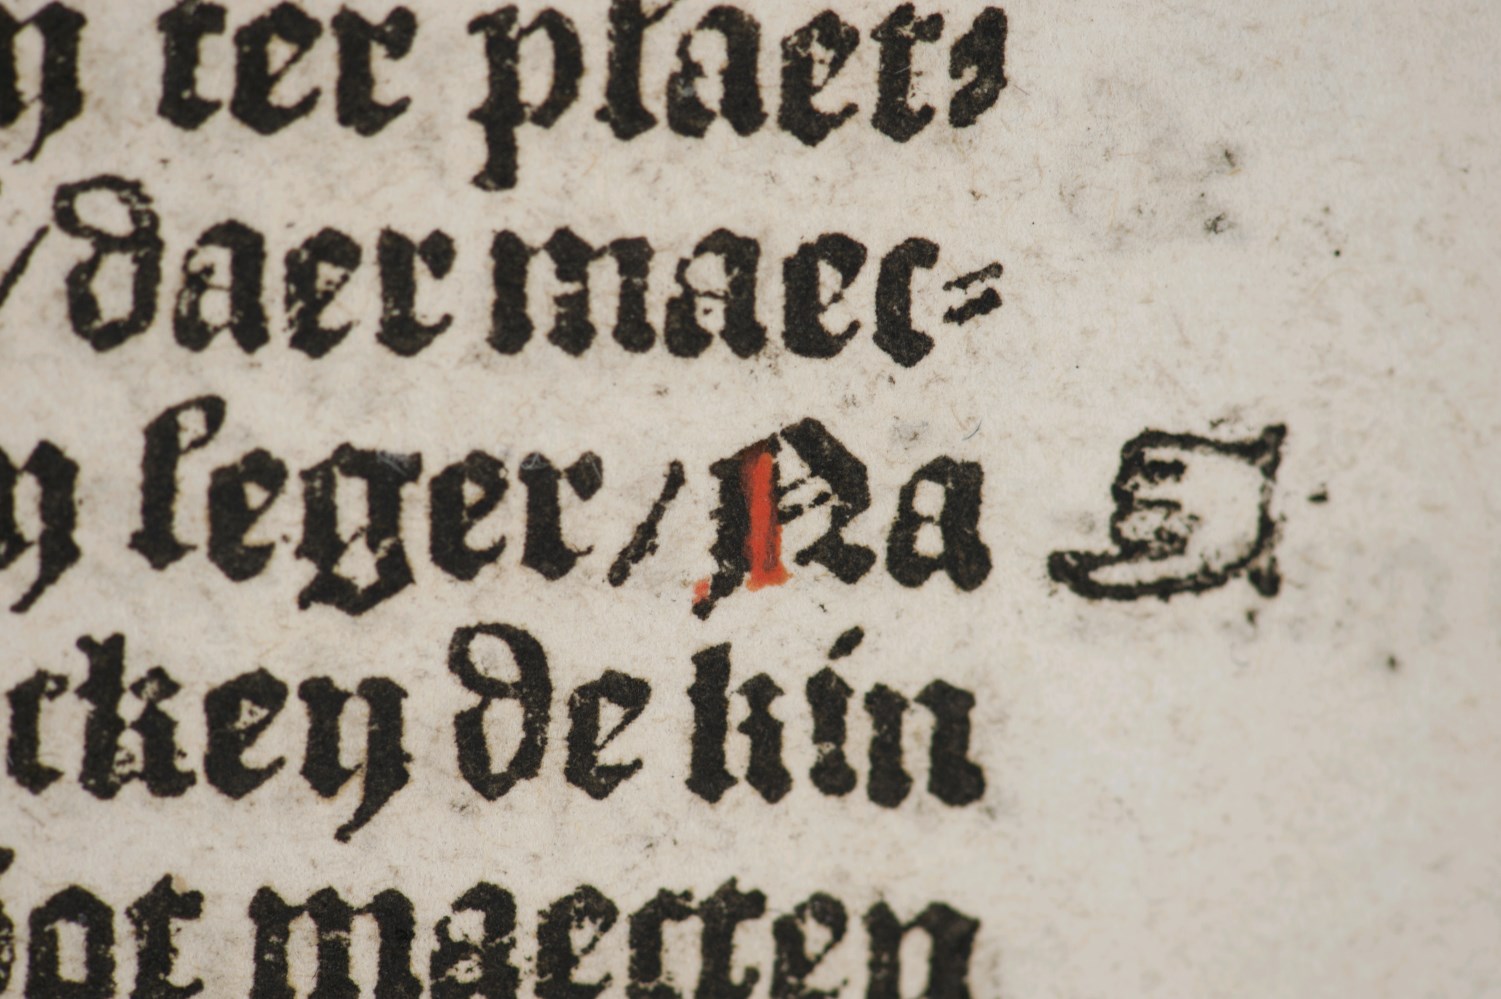 ter plaets
/daer maec=
leger/Na
ckey de kin
maecten